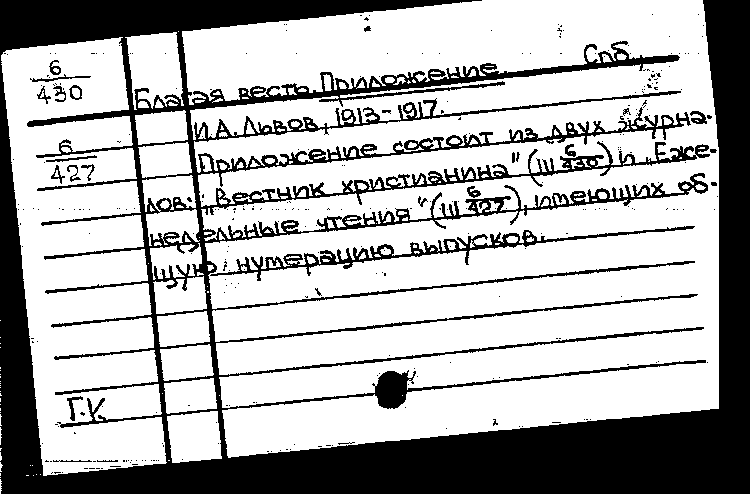 6/430
Благая весть. Приложение. Спб.,
И.А. Львов, 1913-1917.
6/427
Приложение состоит из двух журна-
лов: „Вестник христианина" (III 6/430) и „Еже-
недельные чтения" (III 6/427), имеющих об-
щую нумерацию выпусков.
Г.К